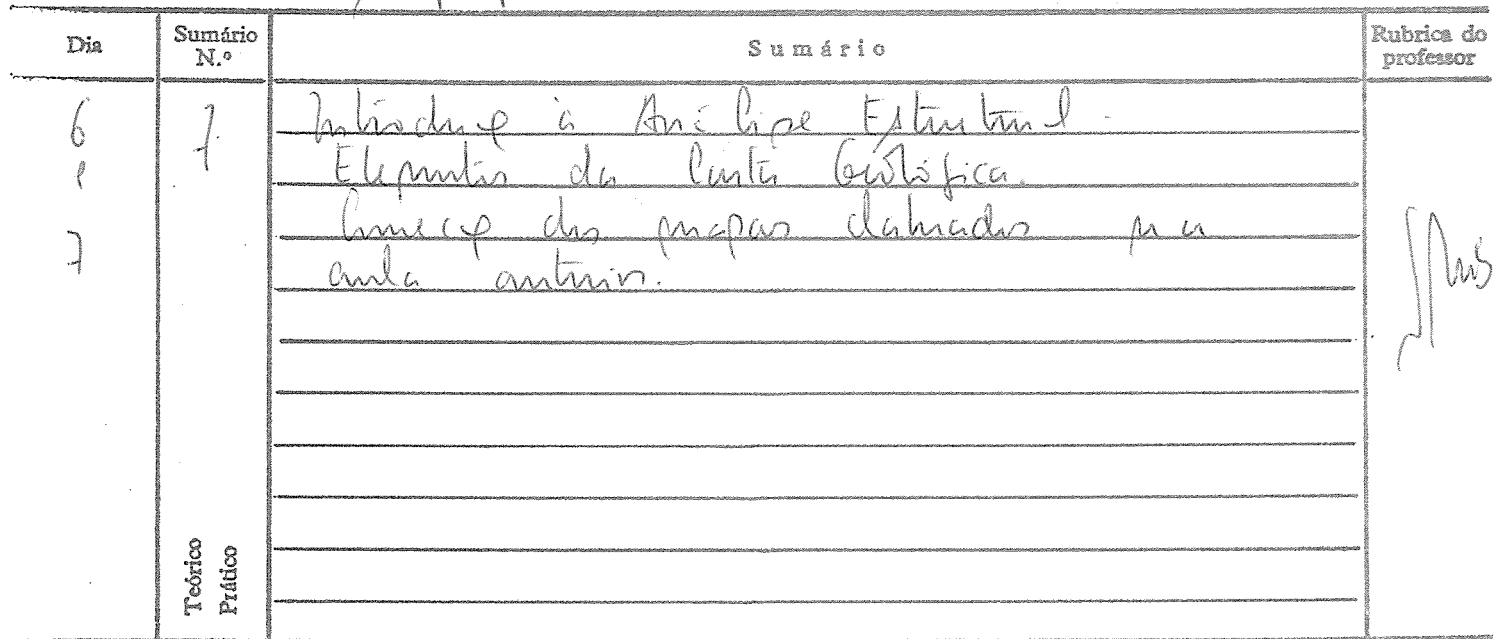 Dia Sumário N.º Sumário Rubrica do professor
6 7 Introdução à Análise Estrutural.
e Elementos da Carta Geológica.
Correcção dos mapas elaborados na
7 aula anterior.
Teórico
Prático